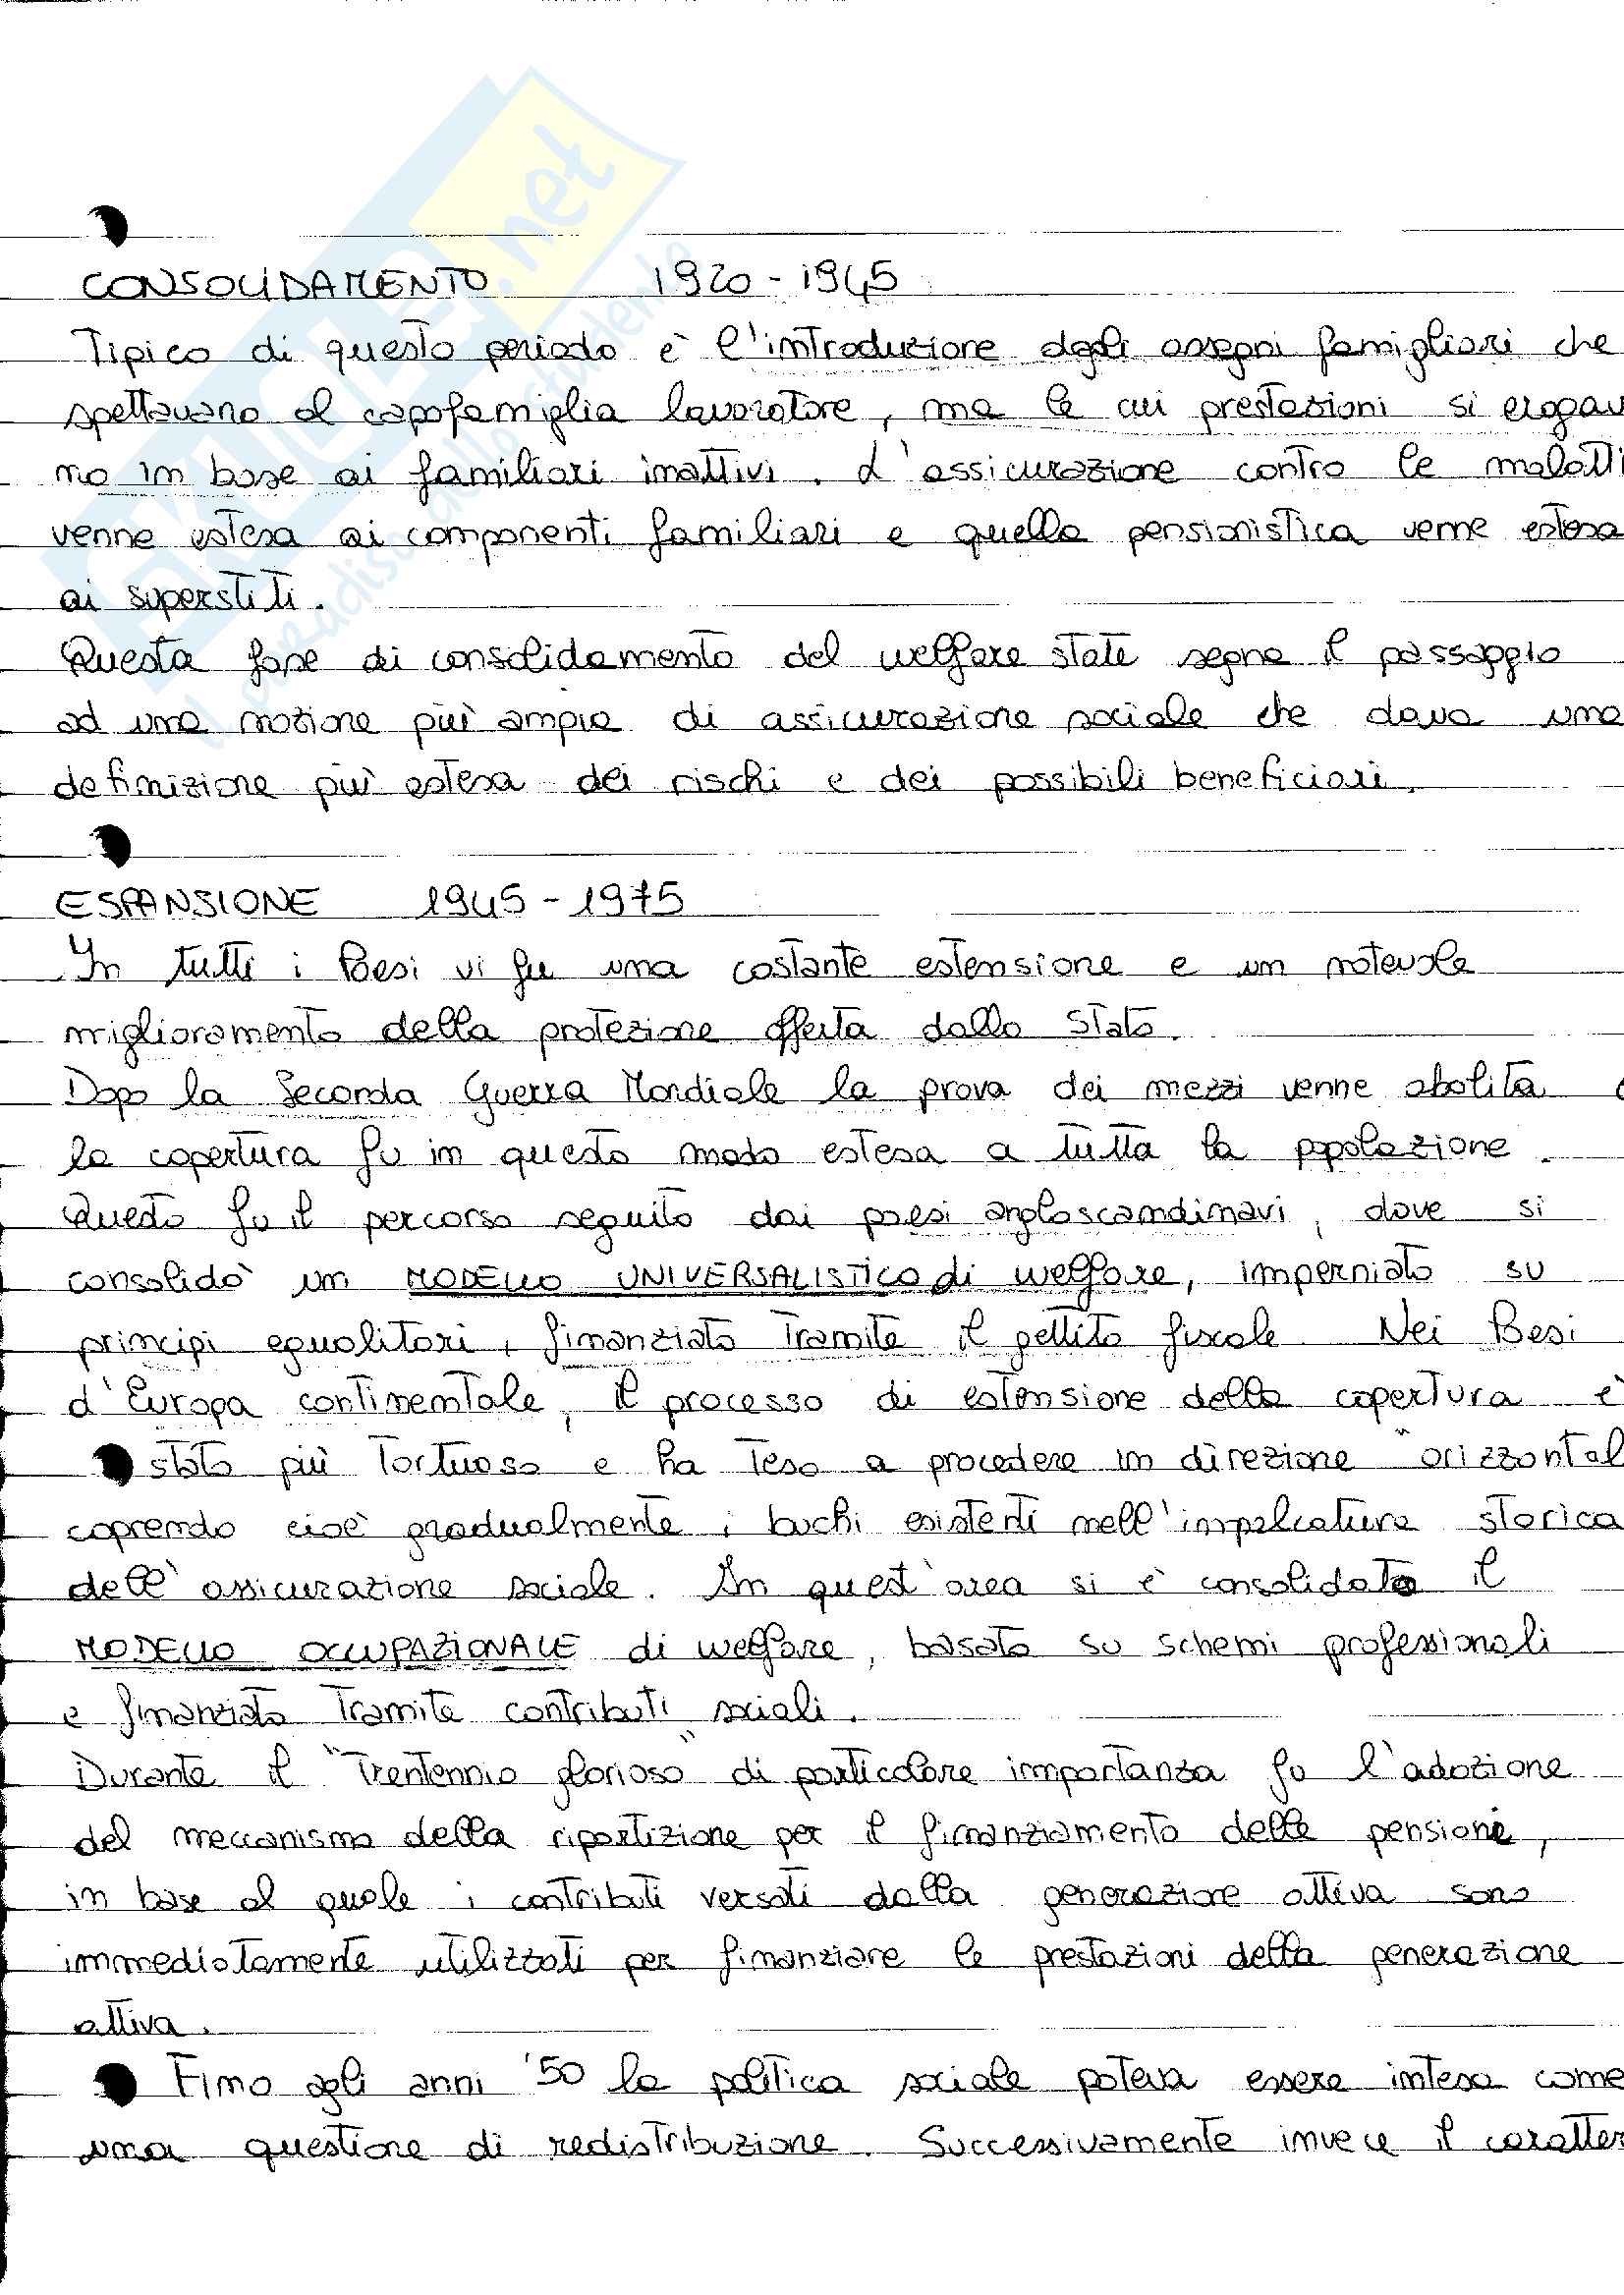 CONSOLIDAMENTO 1920-1945
Tipico di questo periodo è l'introduzione degli assegni famigliari che
spettavano al capofamiglia lavoratore, ma le cui prestazioni si erogav
no in base ai familiari inattivi. L'assicurazione contro le malatti
venne estesa ai componenti familiari e quella pensionistica venne estesa
ai superstiti.
Questa fase di consolidamento del welfare state segna il passaggio
ad una nozione più ampia di assicurazione sociale che dava una
definizione più estesa dei rischi e dei possibili beneficiari.
ESPANSIONE 1945-1975
In tutti i Paesi vi fu una costante estensione e un notevole
miglioramento della protezione offerta dallo Stato.
Dopo la Seconda Guerra Mondiale la prova dei mezzi venne abolita e
la copertura fu in questo modo estesa a tutta la popolazione.
Questo fu il percorso seguito dai paesi angloscandinavi, dove si
consolidò un MODELLO UNIVERSALISTICO di welfare, imperniato su
principi egualitari, finanziato tramite il gettito fiscale. Nei Paesi
d'Europa continentale, il processo di estensione della copertura è
stato più tortuoso e ha teso a procedere in direzione "orizzontal
coprendo cioè gradualmente i buchi esistenti nell'impalcatura storica
dell'assicurazione sociale. In quest'area si è consolidato il
MODELLO OCCUPAZIONALE di welfare, basato su schemi professionali
e finanziato tramite contributi sociali.
Durante il "Trentennio glorioso" di particolare importanza fu l'adozione
del meccanismo della ripartizione per il finanziamento delle pensioni,
in base al quale i contributi versati dalla generazione attiva sono
immediatamente utilizzati per finanziare le prestazioni della generazione
attiva.
Fino agli anni '50 la politica sociale poteva essere intesa come
una questione di redistribuzione. Successivamente invece il caratter